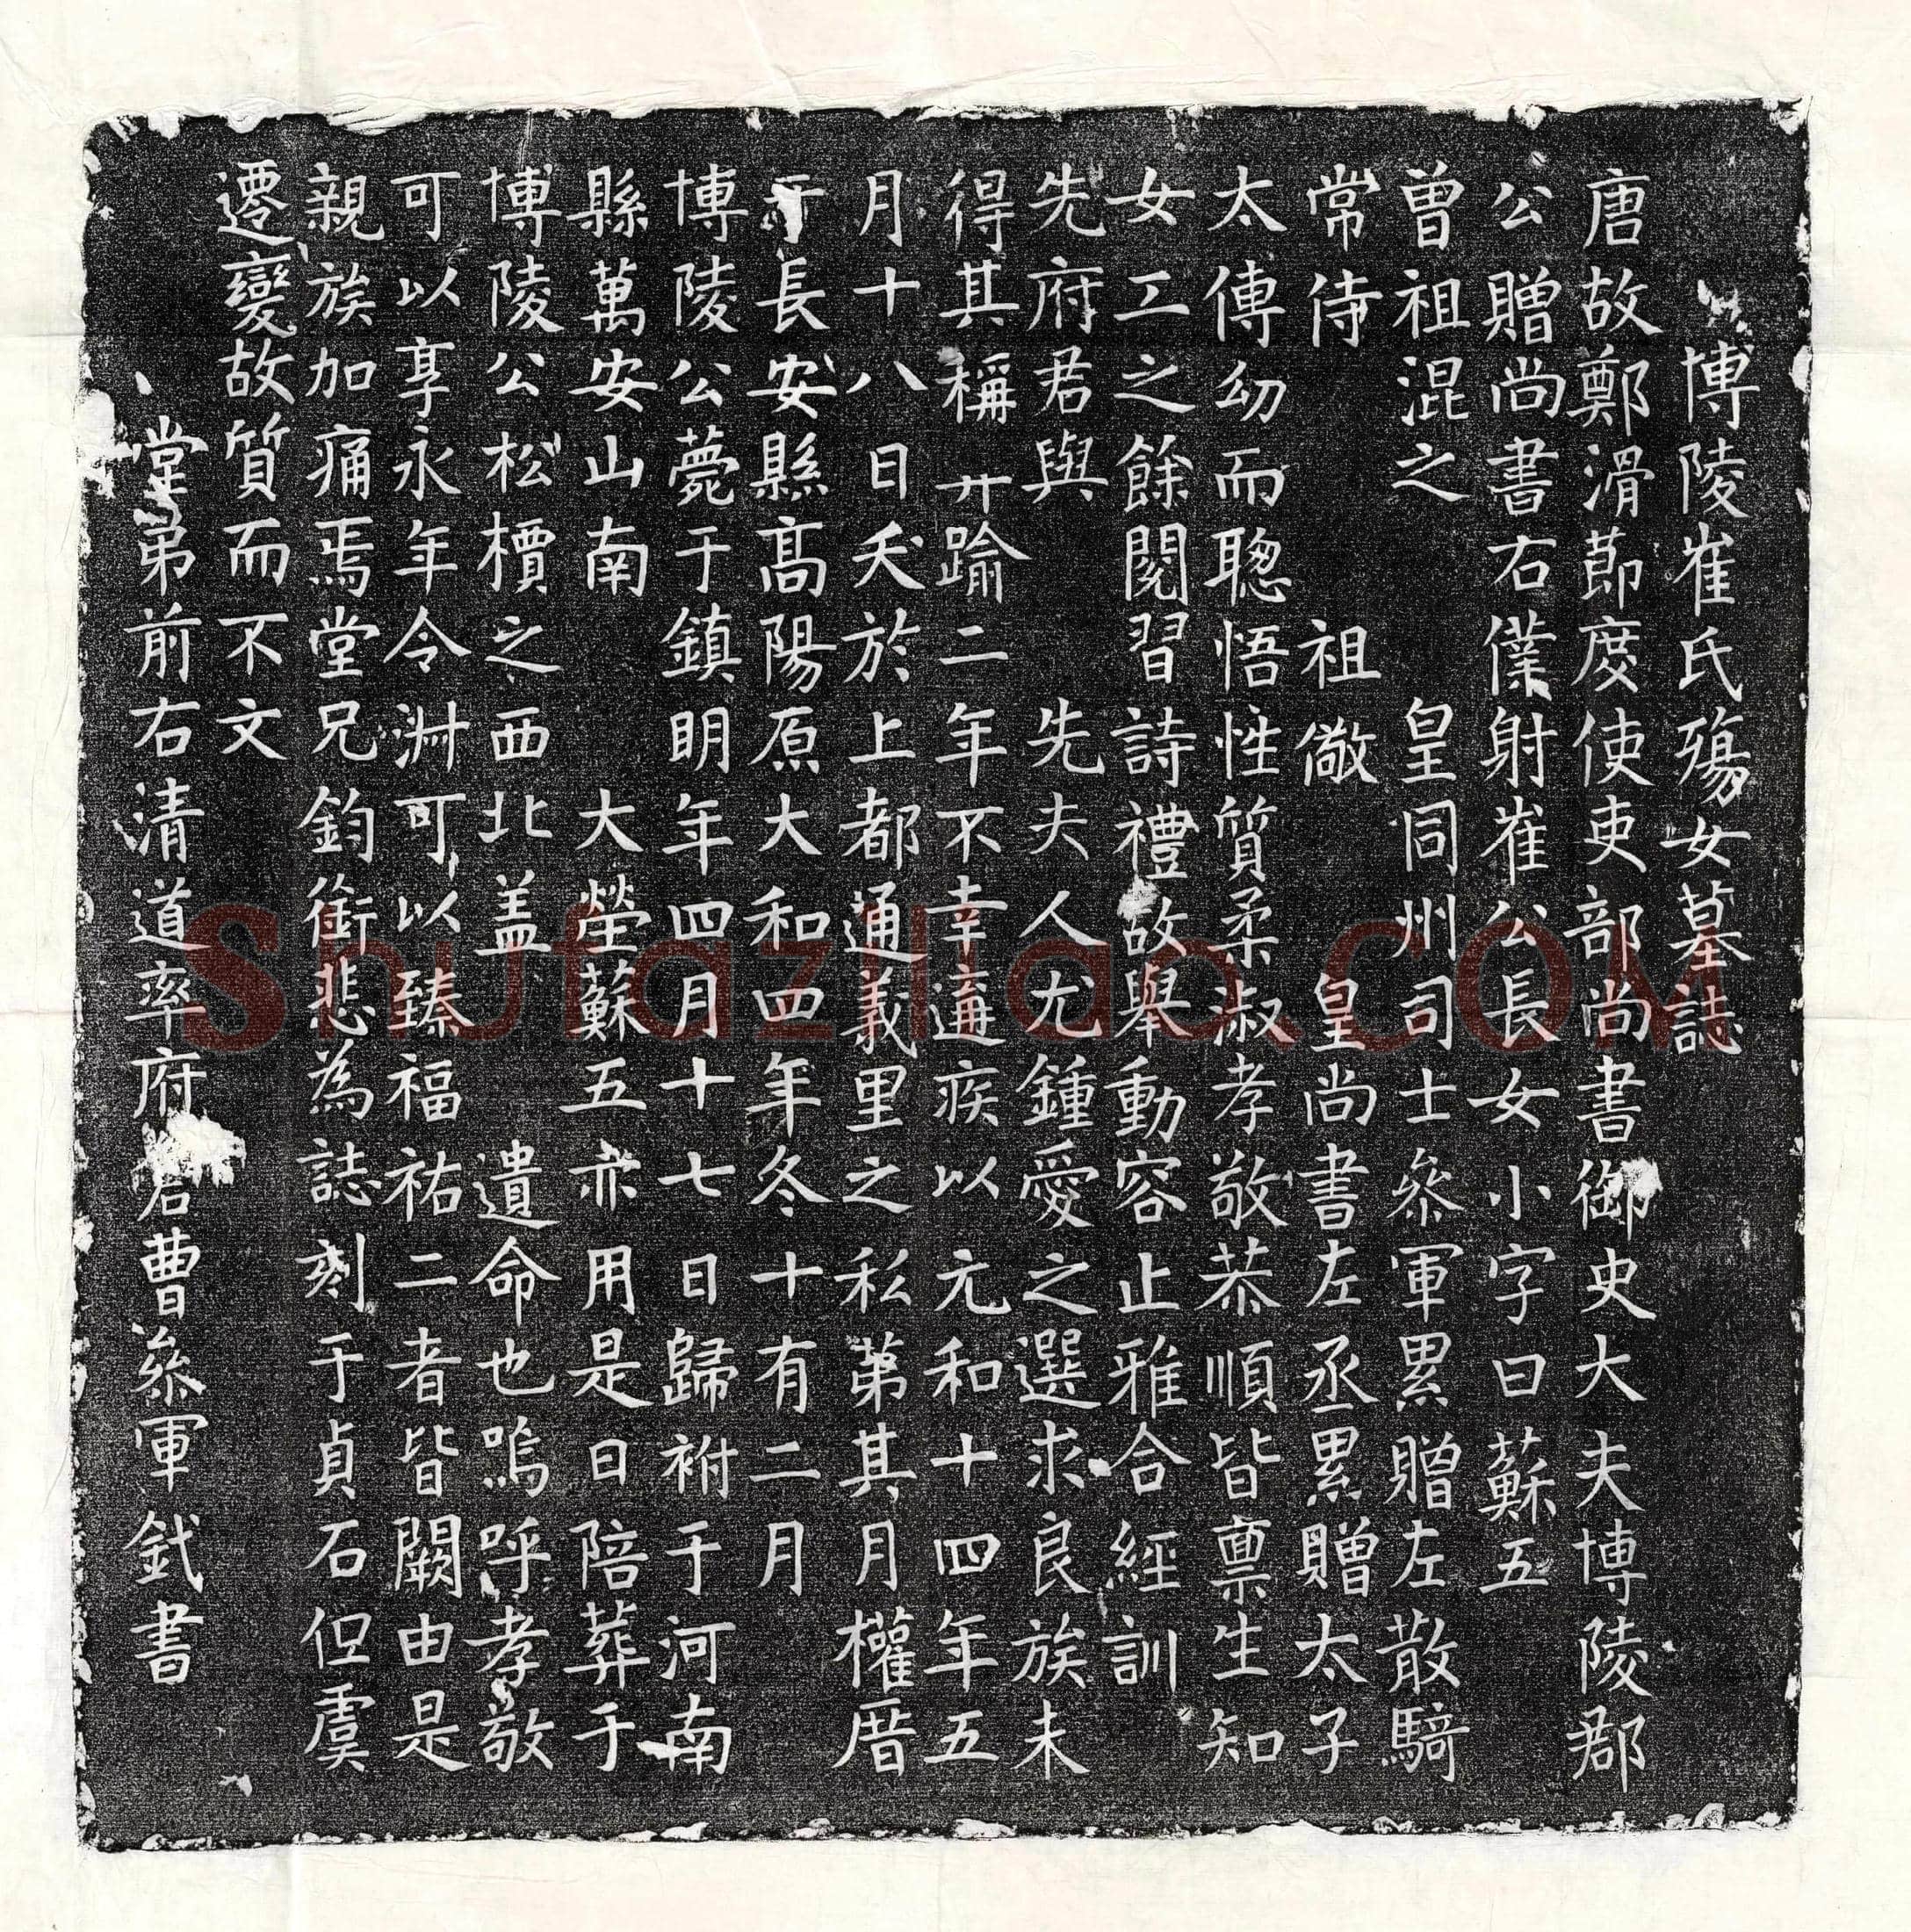 博陵崔氏殤女墓誌
唐故鄭滑節度使吏部尚書御史大夫博陵郡
公贈尚書右僕射崔公長女小字曰蘇五
曾祖混之 皇同州司士叅軍累贈左散騎
常侍 祖儆 皇尚書左丞累贈太子
太傅幼而聰悟性質柔淑孝敬恭順皆禀生知
女工之餘閱習詩禮故舉動容止雅合經訓
先府君與 先夫人尤鍾愛之選求良族未
得其稱廾踰二年不幸遘疾以元和十四年五
月十八日夭於上都通義里之私第其月權厝
于長安縣高陽原大和四年冬十有二月
博陵公薨于鎮明年四月十七日歸祔于河南
縣萬安山南 大塋蘇五亦用是日陪葬于
博陵公松檟之西北盖 遺命也嗚呼孝敬
可以享永年令淑可以臻福祐二者皆闕由是
親族加痛焉堂兄鈞銜悲為誌刻于貞石但虞
遷變故質而不文
堂弟前右清道率府曹叅軍鉽書
Shufaziliao.COM